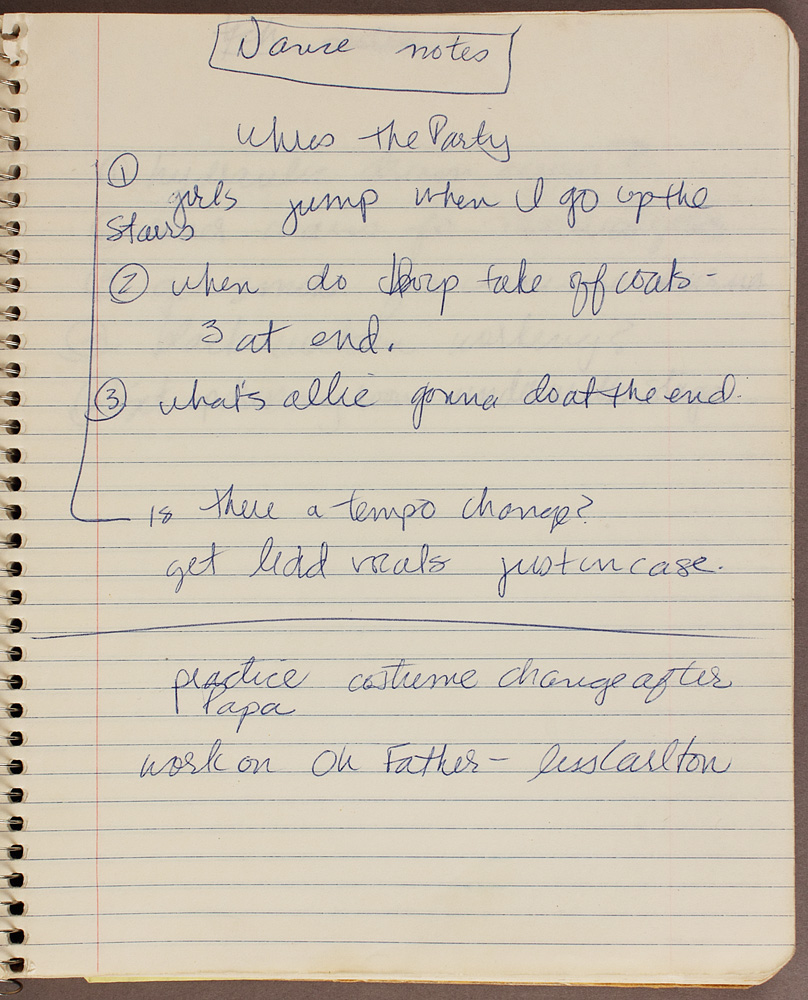 Dance notes
Wheres the Party
①
girls jump when I go up the
Stairs
② when do take off coats -
3 at end.
③ what's ollie gonna do at the end.
is there a tempo change?
get ledd vocals just in case.
practice costume change after
Papa
work on Oh Father - less Carlton